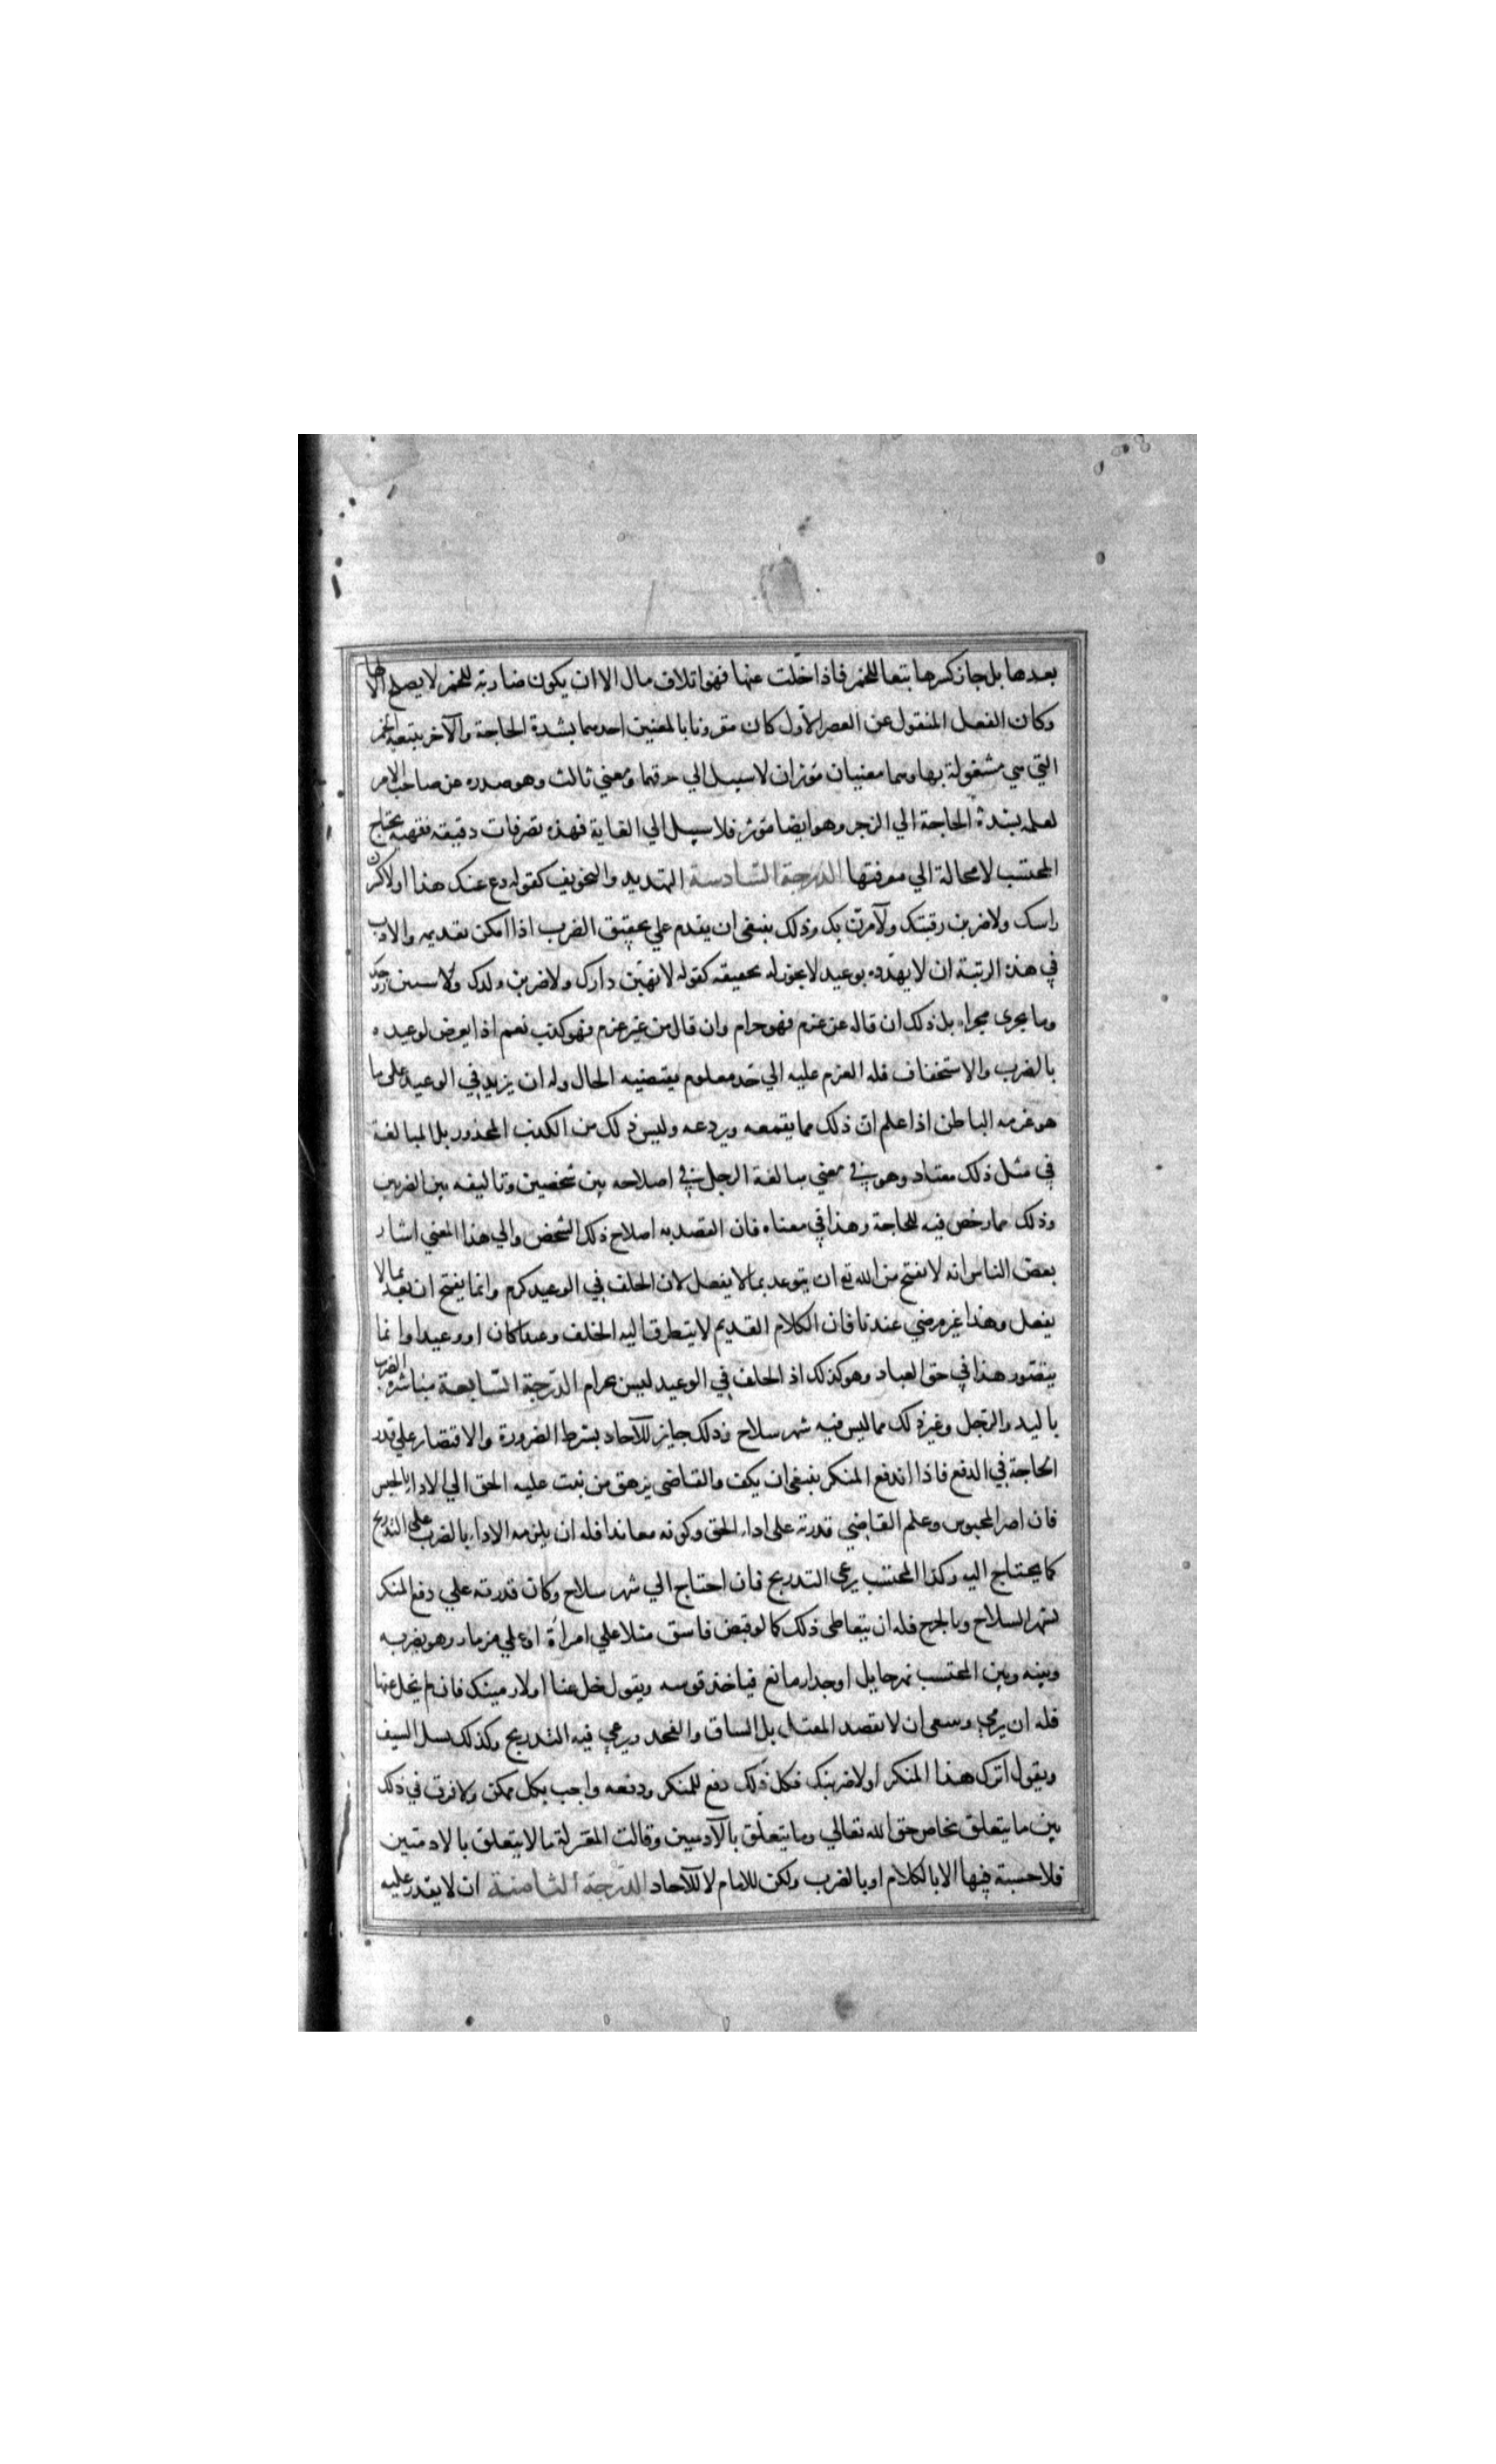 بعدها بل جاز كسرها تبعا للخمر فاذا خلت عنها فهو اتلاف مال الا ان يكون ضارية للخمر لا يصلح الا لها
وكان الفعل المنقول عن العصر الاول كان مقرونا بالمعنين احدهما بشدة الحاجة والآخر بتبعه الخمر
التي هي مشغولة بها وهما معنيان مؤثران لا سبيل الي حذفهما ومعني ثالث وهو صدره عن صاحب الامر
لعلمه بشدة الحاجة الي الزجر وهو ايضا مؤثر فلا سبيل الي الغاية فهذه تصرفات دقيقه فقهيه يحتاج
المحتسب لا محالة الي معرفتها الدرجة السادسة التهديد والتخويف كقوله دع عنك هذا اولا كسرن
راسك ولاضربن رقبتك ولآمرن بك وذلك ينبغي ان يقدم علي تحقيق الضرب اذا امكن تقديمه والادب
في هذه الرتبة ان لا يهدده بوعيد لا يجوز له تحقيقه كقوله لانهبن دارك ولاضربن ولدك ولاسبين زوجتك
وما يجري مجراه بل ذلك ان قاله عن عزم فهو حرام وان قال من غير عزم فهو كذب نعم اذا يعرض لوعيده
بالضرب والاستخفاف فله العزم عليه الي حد معلوم يقتضيه الحال وله ان يزيد في الوعيد على ما
هو عزمه الباطن اذا علم ان ذلك مما يقمعه ويردعه وليس ذلك من الكذب المحذور بل المبالغة
في مثل ذلك معتاد وهو في معني مبالغة الرجل في اصلاحه بين شخصين وتاليفه بين الضربين
وذلك مما رخص فيه للحاجة وهذا في معناه فان القصد به اصلاح ذلك الشخص والي هذا المعني اشار
بعض الناس انه لا يقبح من الله تع ان يتوعد بما لا يفعل لان الخلف في الوعيد كرم وانما يقبح ان يعد بما لا
يفعل وهذا غير مرضي عندنا فان الكلام القديم لا يتطرق اليه الخلف وعدا كان او وعيدا وانما
يتصور هذا في حق العباد وهو كذلك اذ الخلف في الوعيد ليس بحرام الدرجة السابعة مباشرة الضرب
باليد والرجل وغير ذلك مما ليس فيه شهر سلاح وذلك جايز للآحاد بشرط الضرورة والاقتصار علي قدر
الحاجة في الدفع فاذا اندفع المنكر ينبغي ان يكف والقاضي يرهق من ثبت عليه الحق الي الادا بالحبس
فان اصر المحبوس وعلم القاضي قدرته على اداء الحق وكونه معاندا فله ان يلزمه الاداء بالضرب على التدريج
كما يحتاج اليه وكذا المحتسب يرعي التدريج فان احتاج الي شهر سلاح وكان قدرته علي دفع المنكر
لشهر السلاح وبالجرح فله ان يتعاطى ذلك كما لو قبض فاسق مثلا علي امرأة او علي مزمار وهو يضربه
وبينه وبين المحتسب نهر حايل او جدار مانع فياخذ قوسه ويقول خل عنا اولا رمينك فان لم يخل عنها
فله ان يرمي وسعي ان لا يقصد المقتل بل الساق والفخد ويرعي فيه التدريج وكذلك يسل السيف
ويقول اترك هذا المنكر اولا ضربنك فكل ذلك دفع للمنكر ودفعه واجب بكل ممكن ولا فرق في ذلك
بين ما يتعلق بخاص حق الله تعالي وما يتعلق بالآدميين وقالت المعتزلة ما لا يتعلق بالادميين
فلا حسبة فيها الا بالكلام او بالضرب ولكن للامام لا للآحاد الدرجة الثامنة ان لا يقدر عليه